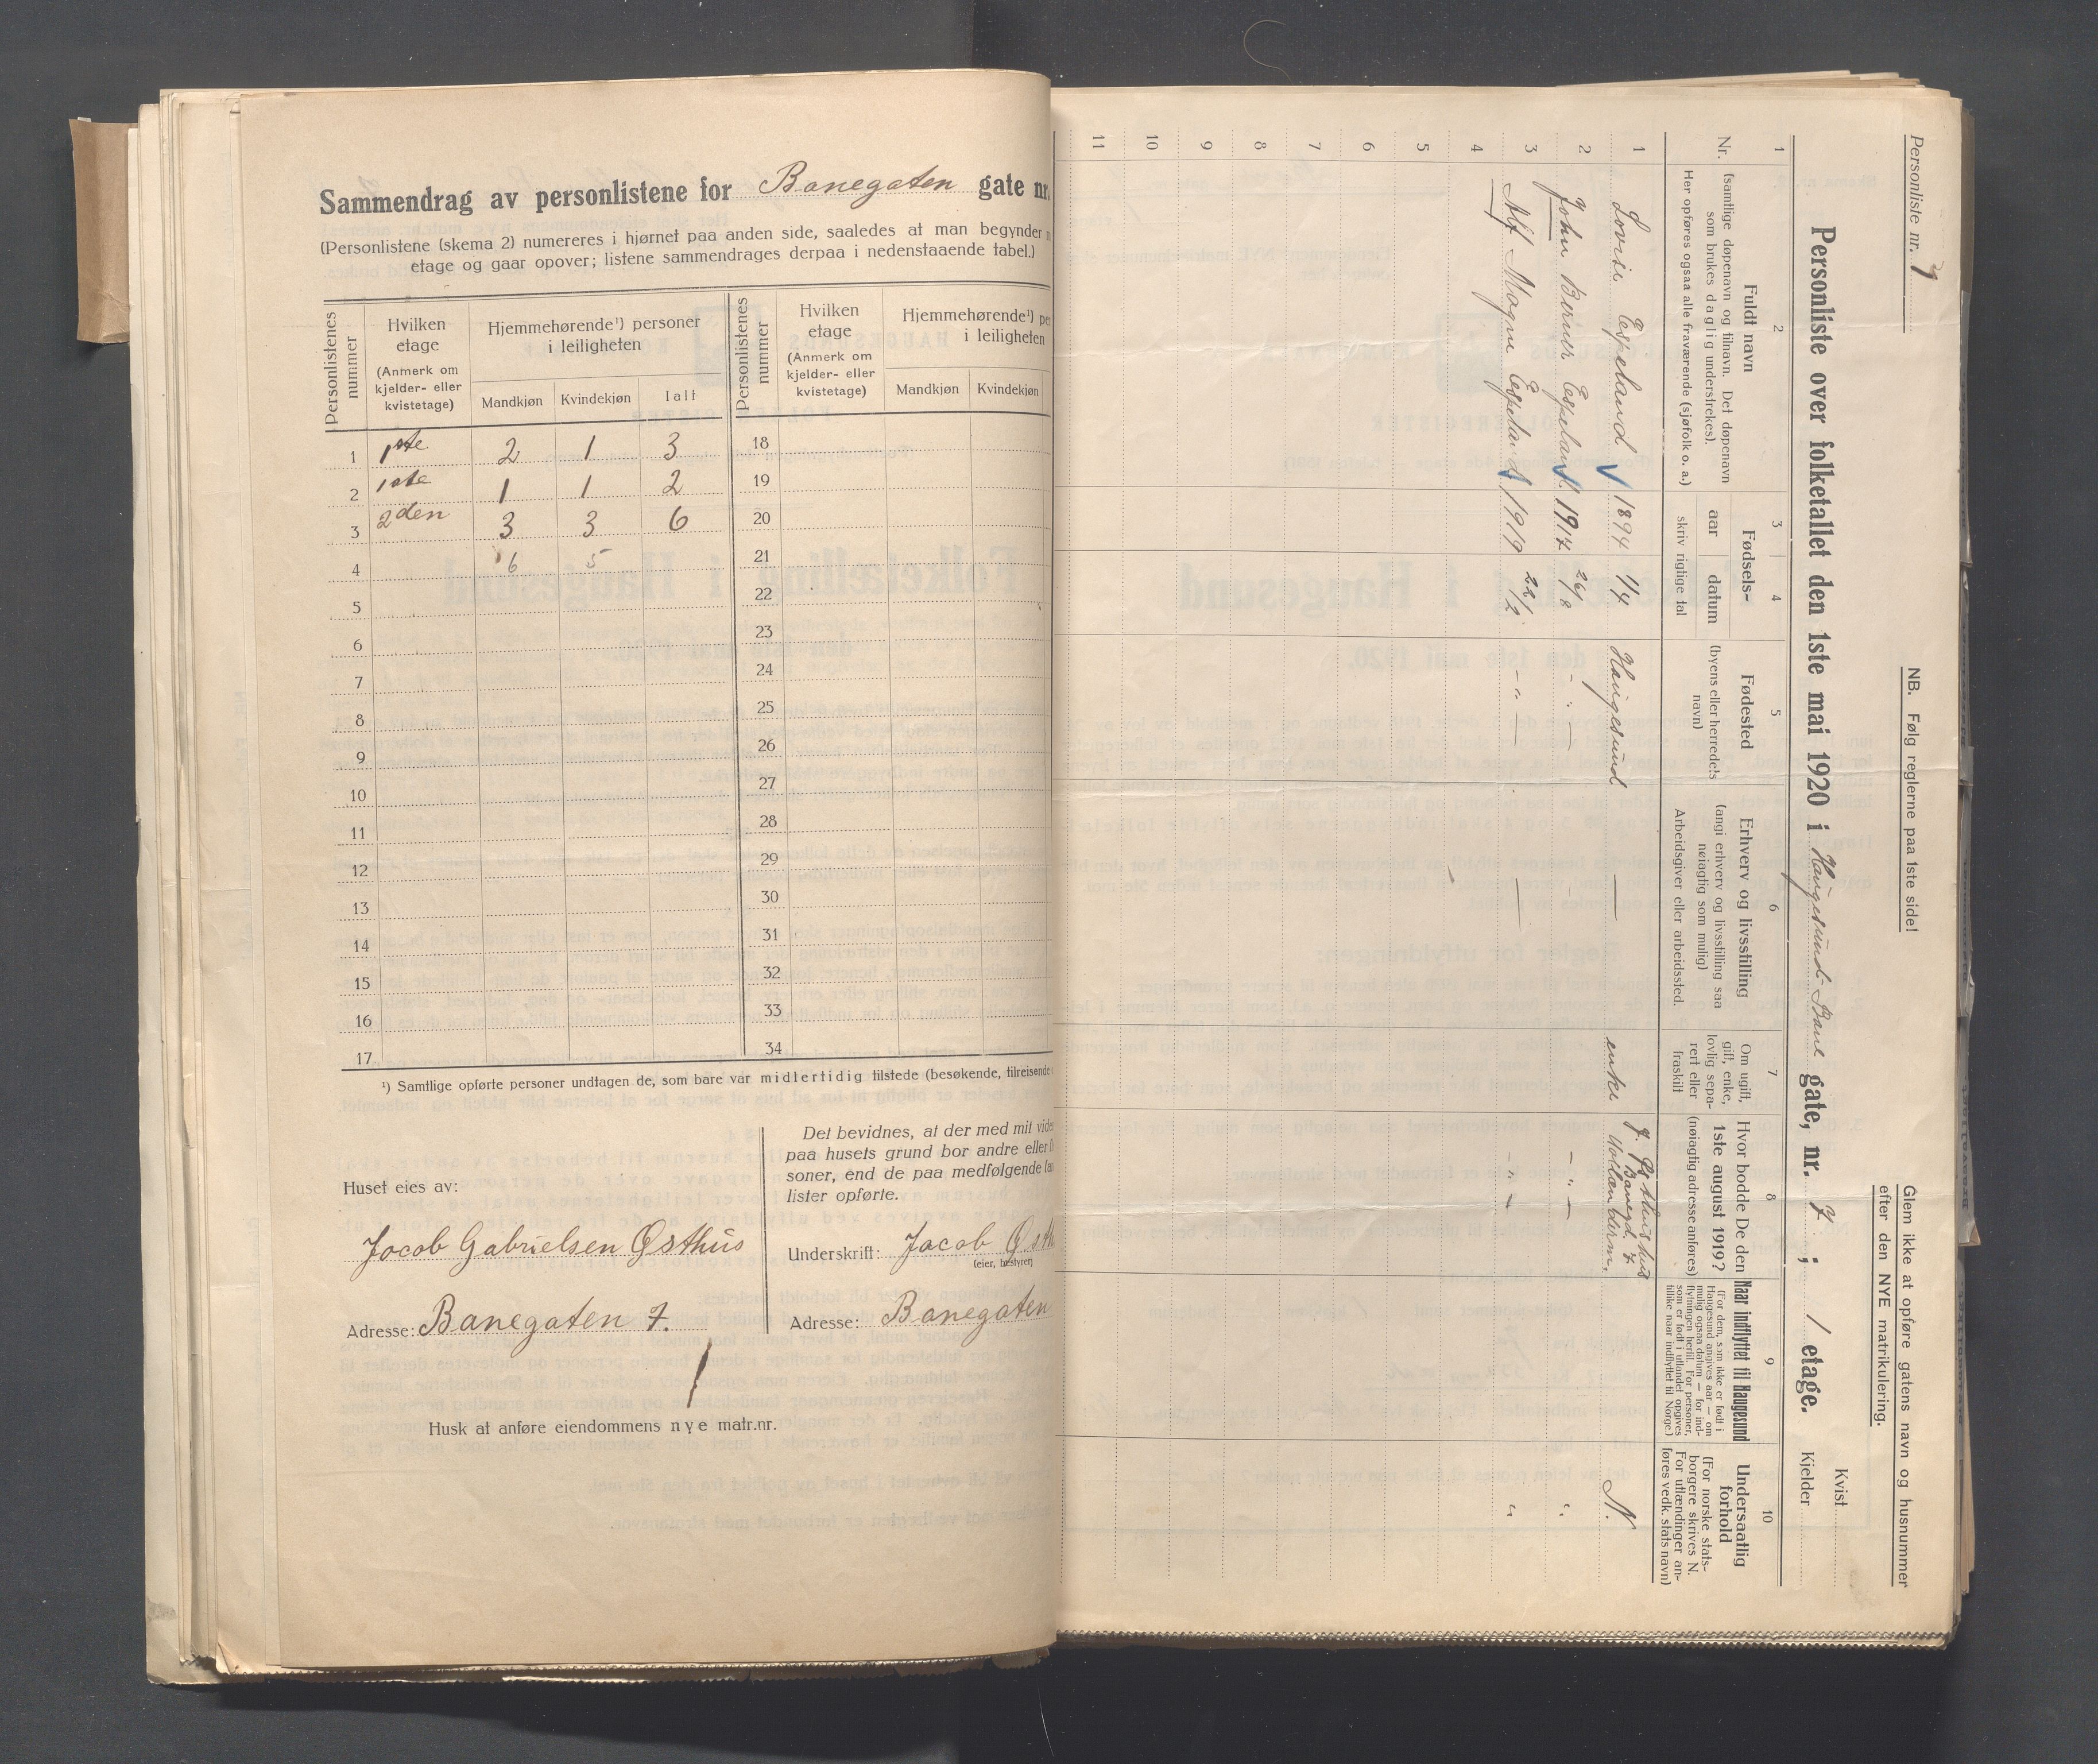 Sammendrag av personlistene for Banegaten gate nr.
(Personlistene (skema 2) numereres i hjørnet paa anden side, saaledes at man begynder
etage og gaar opover; listene sammendrages derpaa i nedenstaaende tabel.)
Personlistenes nummer
Hvilken etage
(Anmerk om kjelder- eller kvistetage)
Hjemmehørende¹) personer i leiligheten
Mandkjøn Kvindekjøn Ialt
Personlistenes nummer
Hvilken etage
(Anmerk om kjelder- eller kvistetage)
Hjemmehørende¹) pe
i leiligheten
Mandkjøn Kvindekjøn
1 1ste 2 1 3 18
2 1ste 1 1 2 19
3 2den 3 3 6 20
4 6 5 21
5 22
6 23
7 24
8 25
9 26
10 27
11 28
12 29
13 30
14 31
15 32
16 33
17 34
¹) Samtlige opførte personer undtagen de, som bare var midlertidig tilstede (besøkende, tilreisende
Huset eies av:
Jacob Gabrielsen Østhus
Adresse: Banegaten 7.
1
Husk at anføre eiendommens nye matr.nr.
Det bevidnes, at der med mit vide
paa husets grund bor andre eller fl
soner, end de paa medfølgende
lister opførte.
Underskrift: Jacob Østh
(eier, bestyrer)
Adresse: Banegaten
Personliste nr.
NB. Følg reglerne paa 1ste side!
Glem ikke at opføre gatens navn og husnummer
efter den NYE matrikulering.
Personliste over folketallet den 1ste mai 1920 i Haugesund Bane gate, nr. 7 ; 1 etage.
Kvist
Kjelder
1 2 3 4 5 6 7 8 9 10
Nr.
Fuldt navn
(samtlige døpenavn og tilnavn. Det døpenavn
som brukes daglig understrekes).
Her opføres ogsaa alle fraværende (sjøfolk o. a.)
Fødsels-
aar datum
skriv rigtige tal
Fødested
(byens eller herredets
navn)
Erhverv og livsstilling
(angi erhverv og livsstilling saa
nøiagtig som mulig)
Arbeidsgiver eller arbeidssted.
Om ugift,
gift, enke,
lovlig sepa-
rert eller
fraskilt
Hvor bodde De den
1ste august 1919?
(nøiagtig adresse anføres)
Naar indflyttet til Haugesund
(For dem, som ikke er født i
Haugesund angives aar — om
mulig ogsaa datum — for ind-
flytningen hertil. For personer,
som er født i utlandet opgives
tillike naar indflyttet til Norge.)
Undersaatlig
forhold
(For norske stats-
borgere skrives N.
For utlændinger an-
føres vedk. stats navn)
1 Lovise Espeland 1894 1/4 Haugesund — enke J. Østhus hus Banegt. 7 N.
2 John Berner Espeland 1917 26/8 - " — - " — "
3 Alf Magne Espeland 1919 22/2 - " — — - " - "
4
5
6
7
8
9
10
11